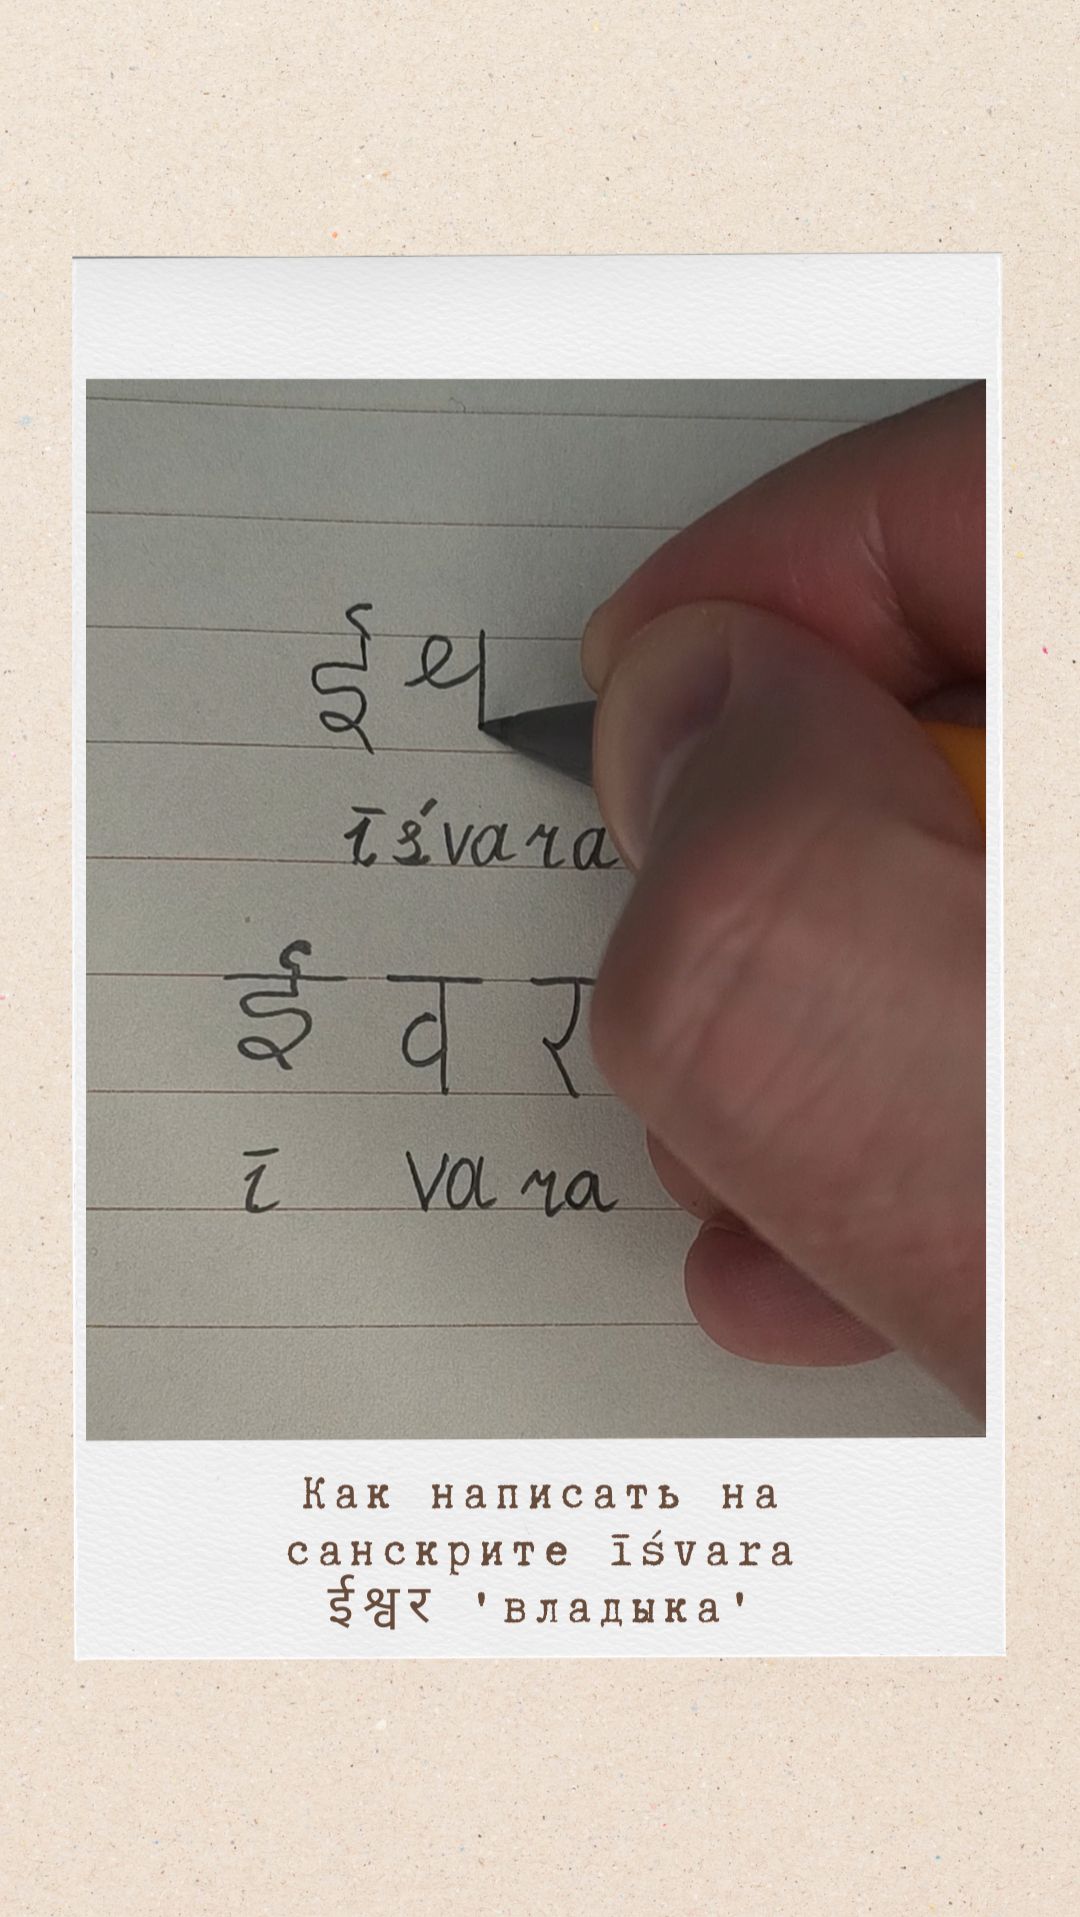 ई
īśvara
ई व र
ī va ra
Как написать на
санскрите īśvara
ईश्वर 'владыка'